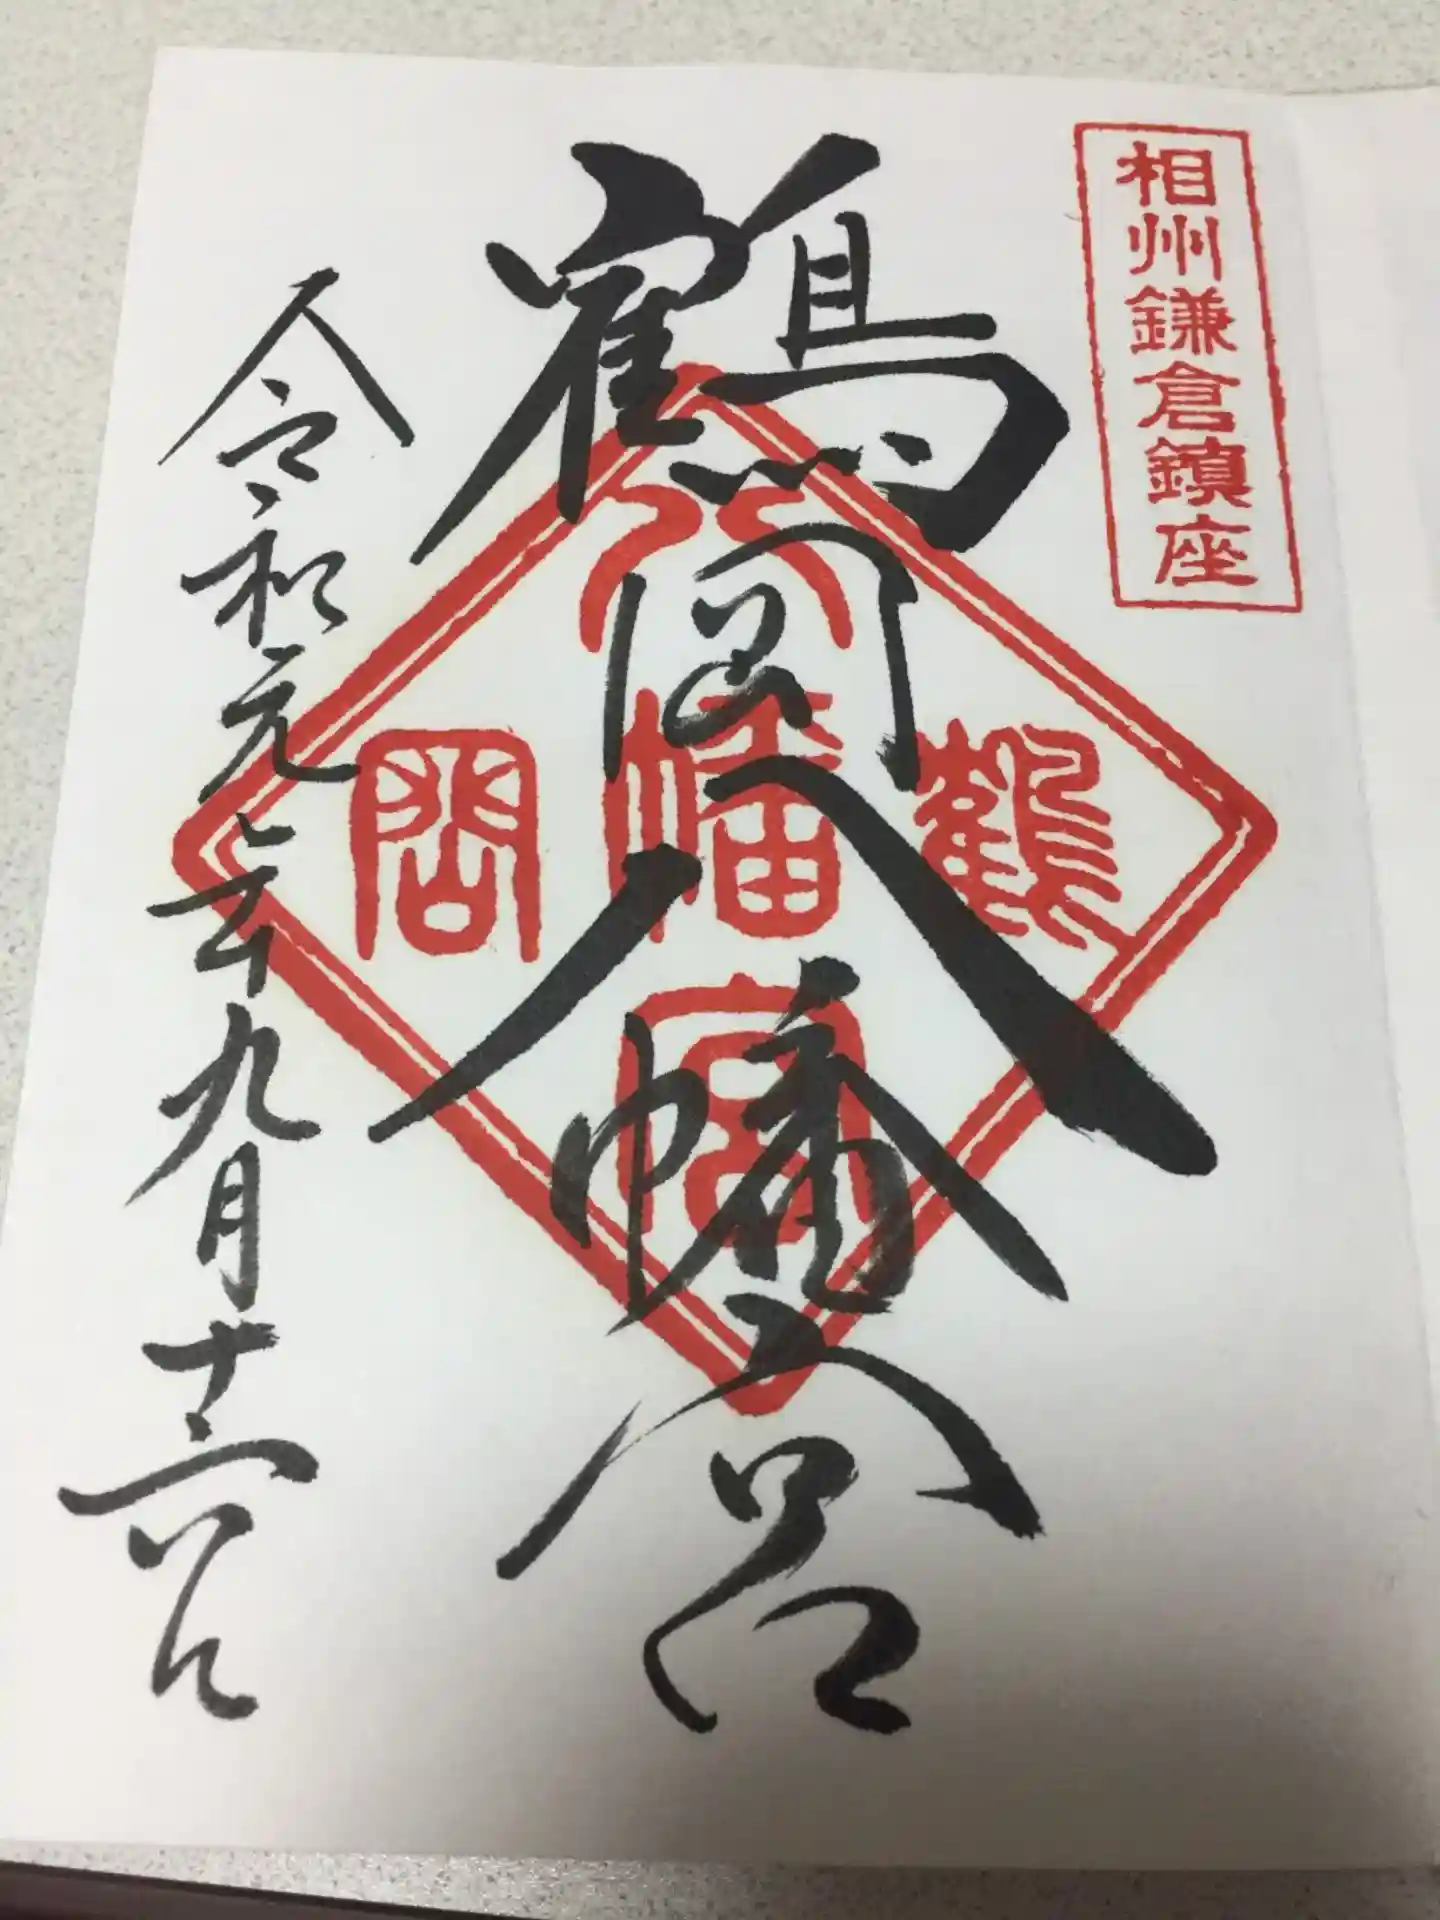 相州鎌倉鎮座
鶴岡八幡宮
八幡宮
鶴
岡
令和元年九月十六日